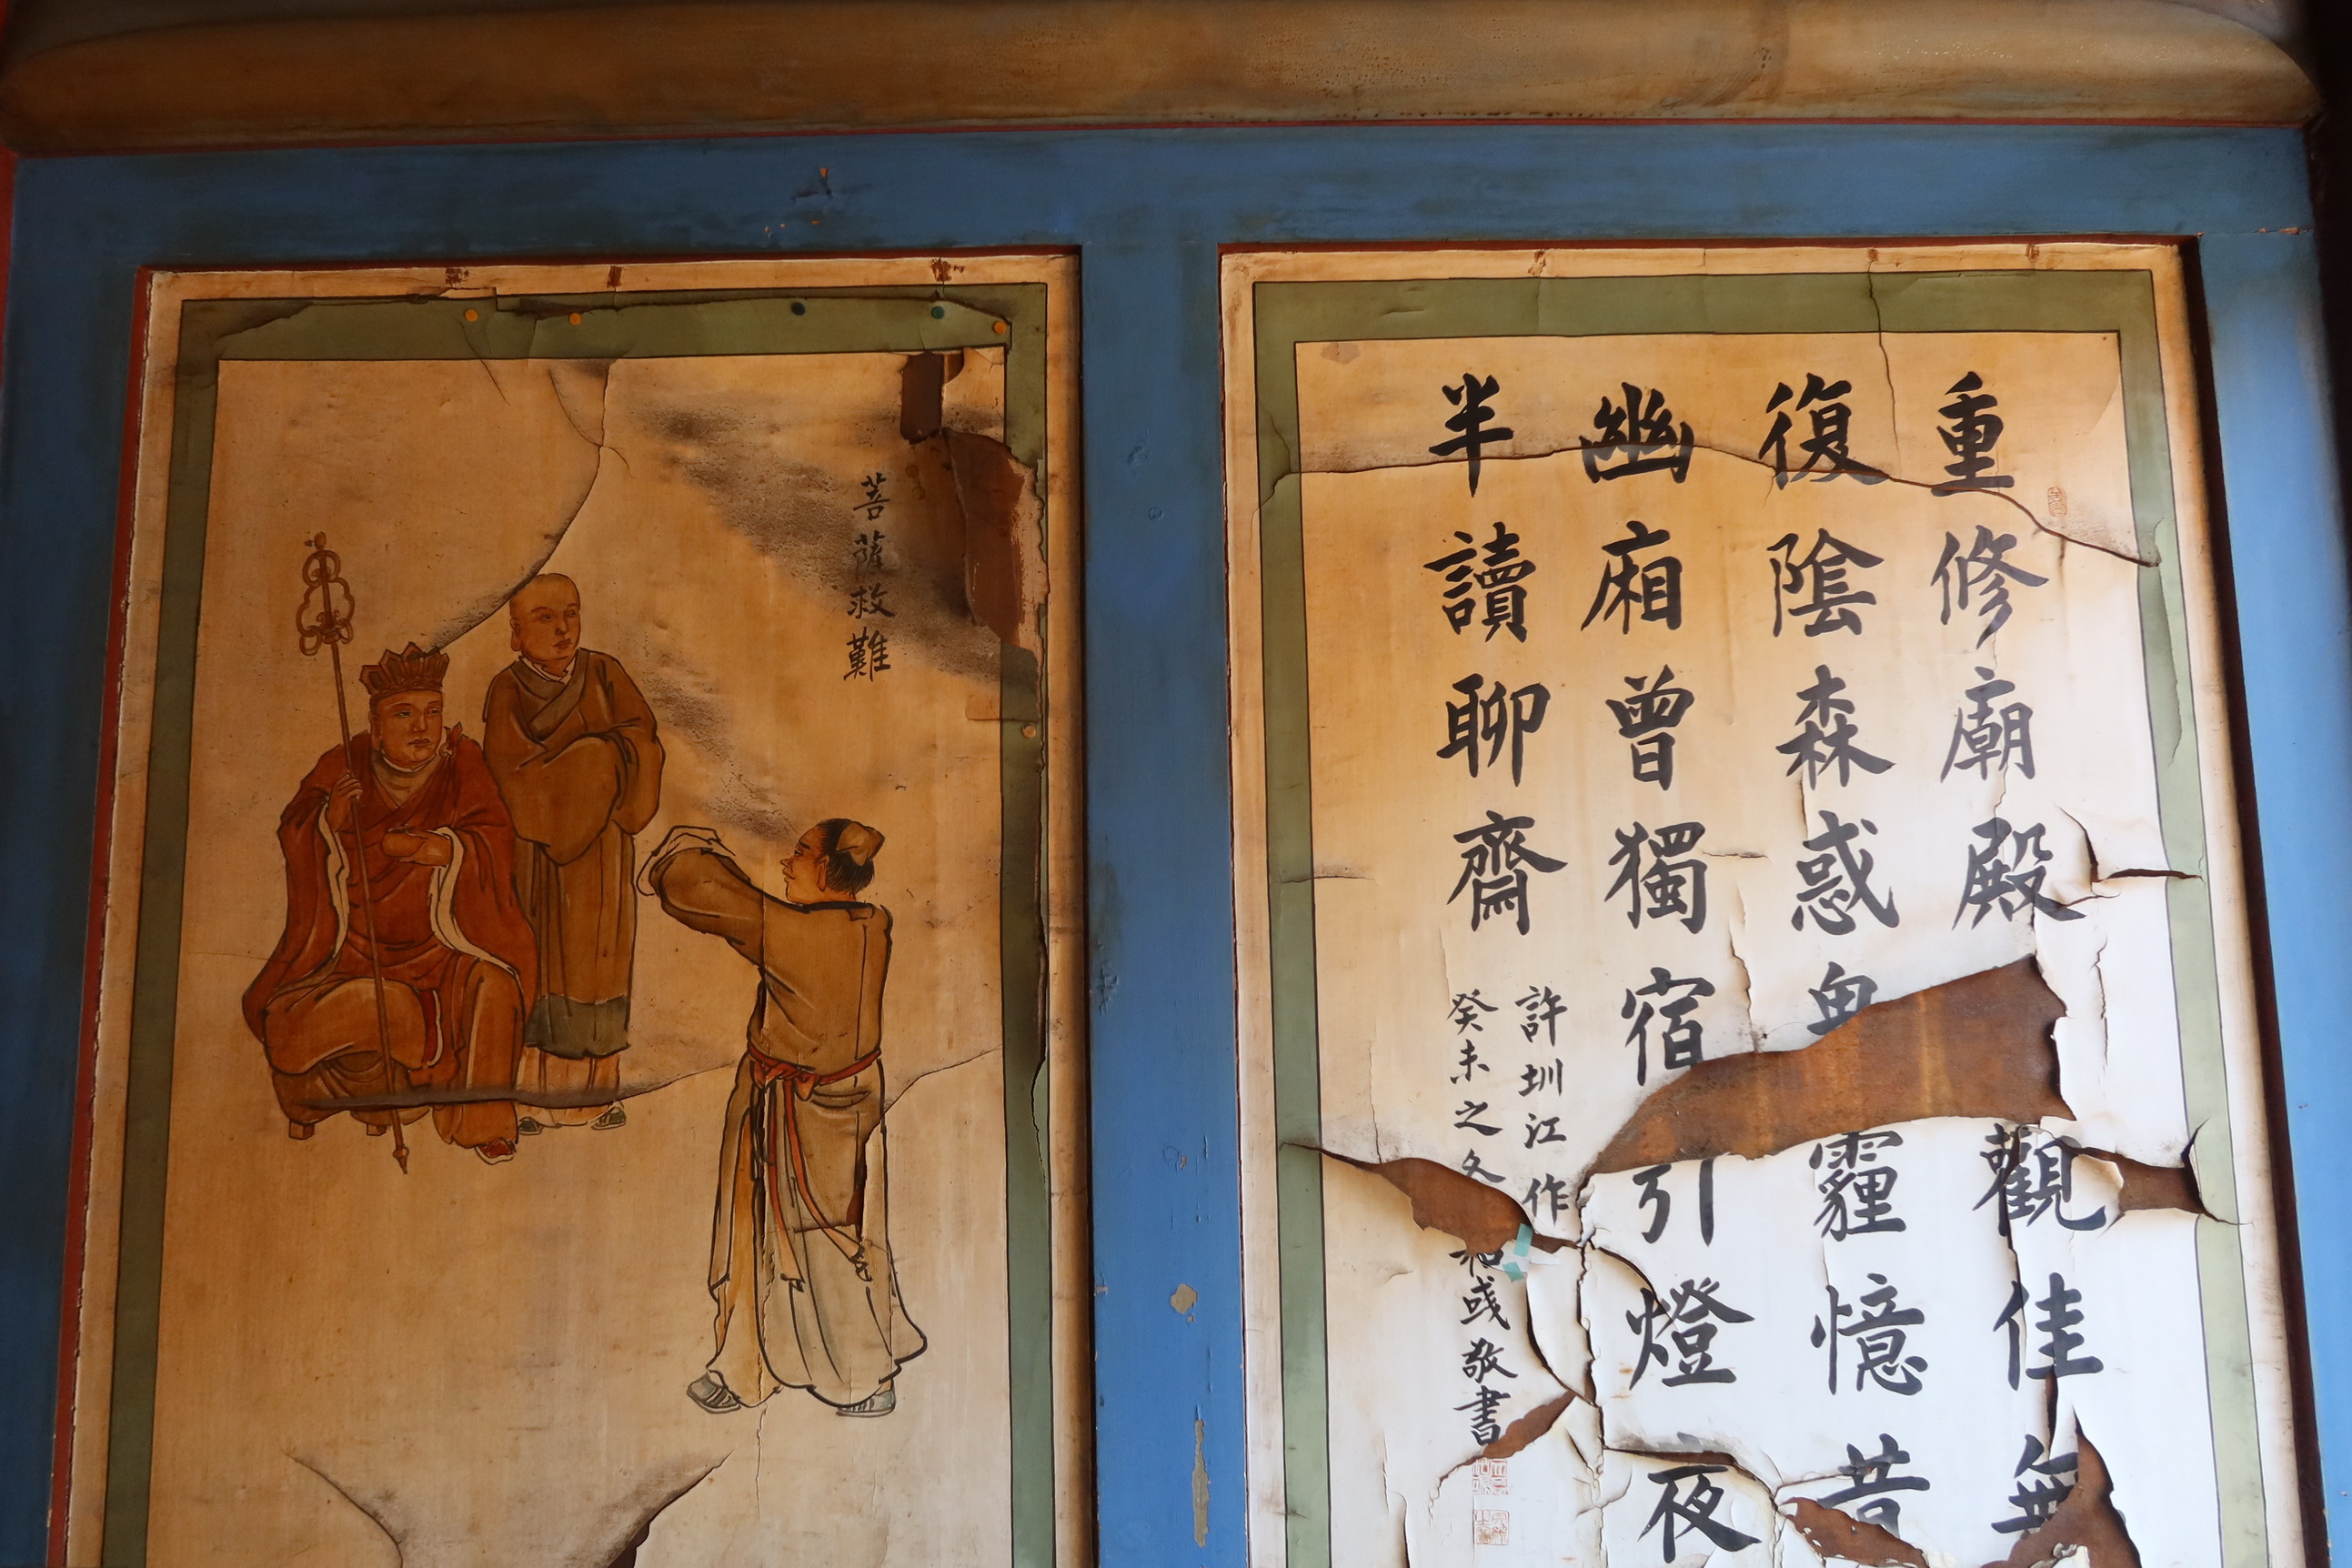 重修廟殿觀佳無
復陰森惑霾憶昔
幽廂曾獨宿引燈夜
半讀聊齋
許圳江作
癸未之冬彧敬書
菩薩救難